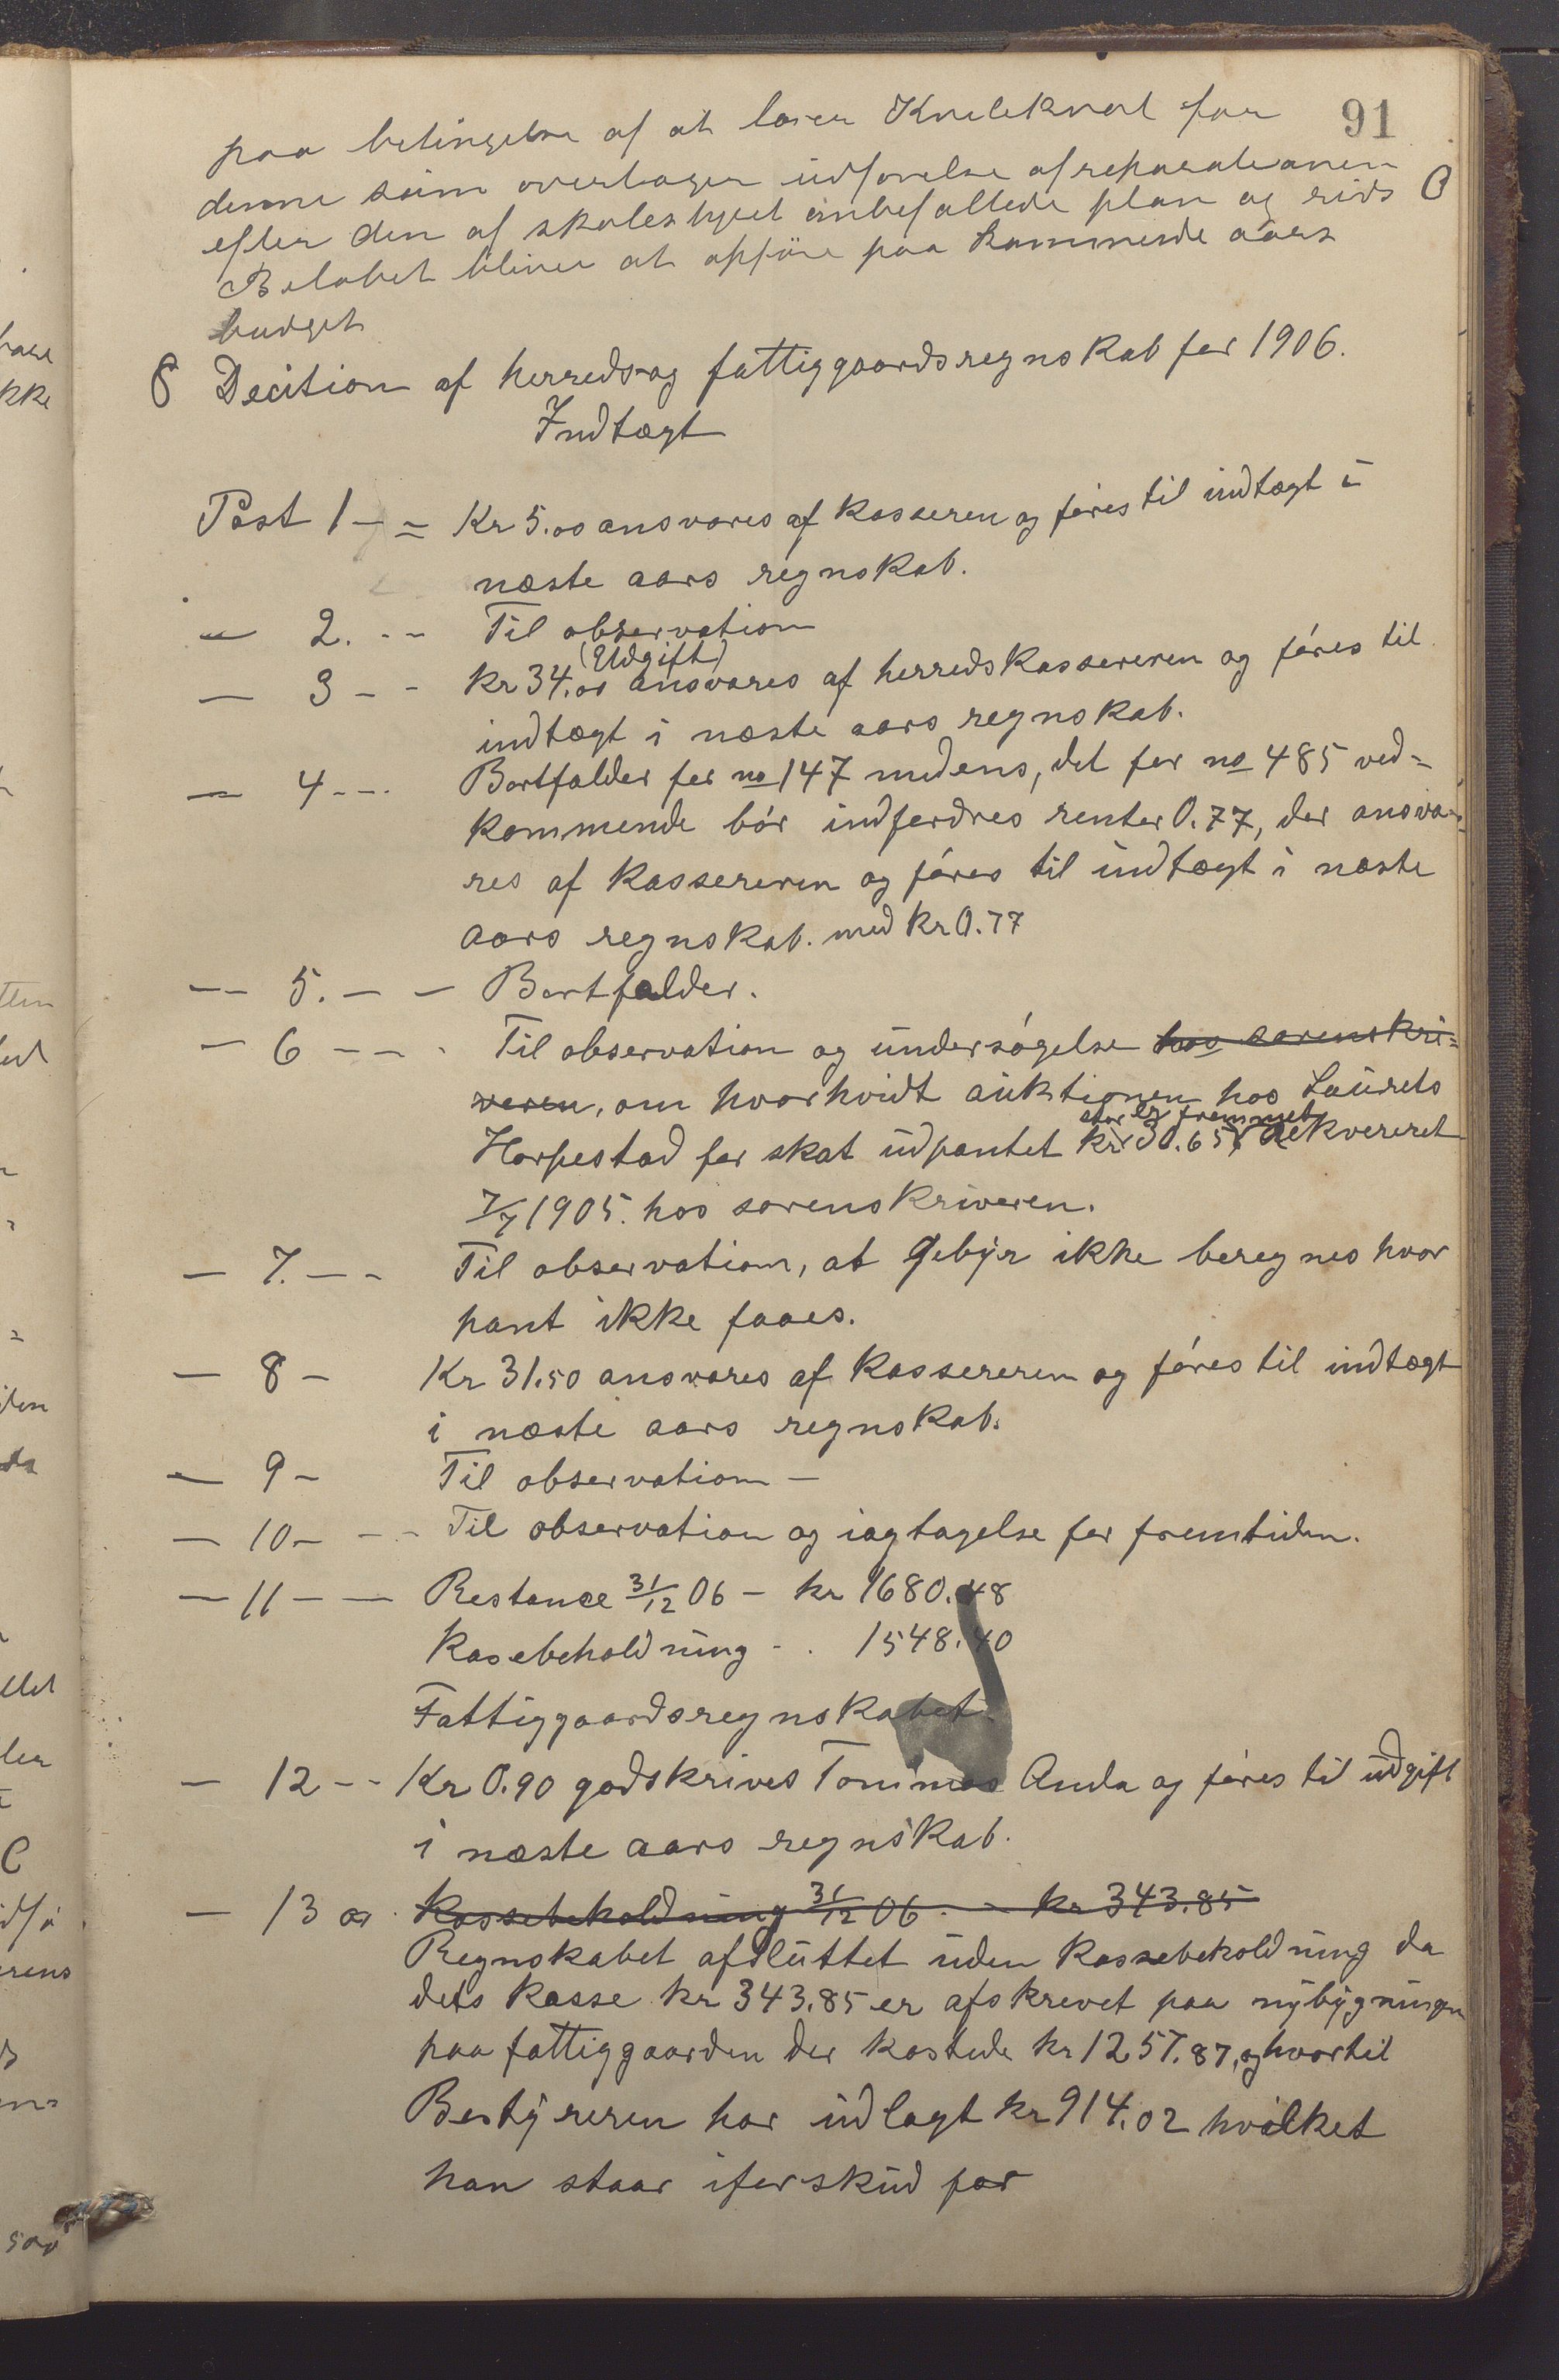 91
paa betingelse af at lærer Knelekval for
denne sum overtager udførelse af reparationen
efter den af skolestyret anbefallede plan og rids
Beløbet bliver at opføre paa kommende aars
budget
8 Decition af herreds og fattiggaardsregnskab for 1906.
Indtægt
Post 1 – = Kr 5.00 ansvares af kasseren og føres til indtægt i
næste aars regnskab.
— 2. - - Til observation
(Udgift)
— 3 - - kr 34.00 ansvares af herredskassereren og føres til
indtægt i næste aars regnskab.
— 4 - - . Bortfalder for no 147 medens, det for no 485 ved=
kommende bør indfordres renter 0.77, der ansva=
res af kassereren og føres til indtægt i næste
aars regnskab. med kr 0.77
— 5. — — Bortfalder.
— 6 — — . Til observation og undersøgelse hos sorenskri=
veren, om hvorhvidt auktionen hos Laurets
stor er fremmet
Harpestad for skat udpantet kr 30.65 rekvereret
7/7 1905. hos sorenskriveren.
— 7. — - Til observation, at gebyr ikke beregnes hvor
pant ikke faaes.
— 8 — Kr 31.50 ansvares af kassereren og føres til indtægt
i næste aars regnskab.
— 9 — Til observation —
— 10 — - - Til observation og iagtagelse for fremtiden.
— 11 — — Restance 31/12 06 — kr 1680.48
Kasebeholdning - . 1548.40
Fattiggaardsregnskabet.
— 12 - - Kr 0.90 godskrives Tønnes Anda og føres til udgift
i næste aars regnskab.
— 13 og . Kassebeholdning 31/12 06 . - kr 343.85
Regnskabet afsluttet uden kassebeholdning da
dets kasse kr 343.85 er afskrevet paa nybygningen
paa fattiggaarden der kostede kr 1257.87, og hvortil
Bestyreren har udlagt kr 914.02 hvilket
han staar iforskud for